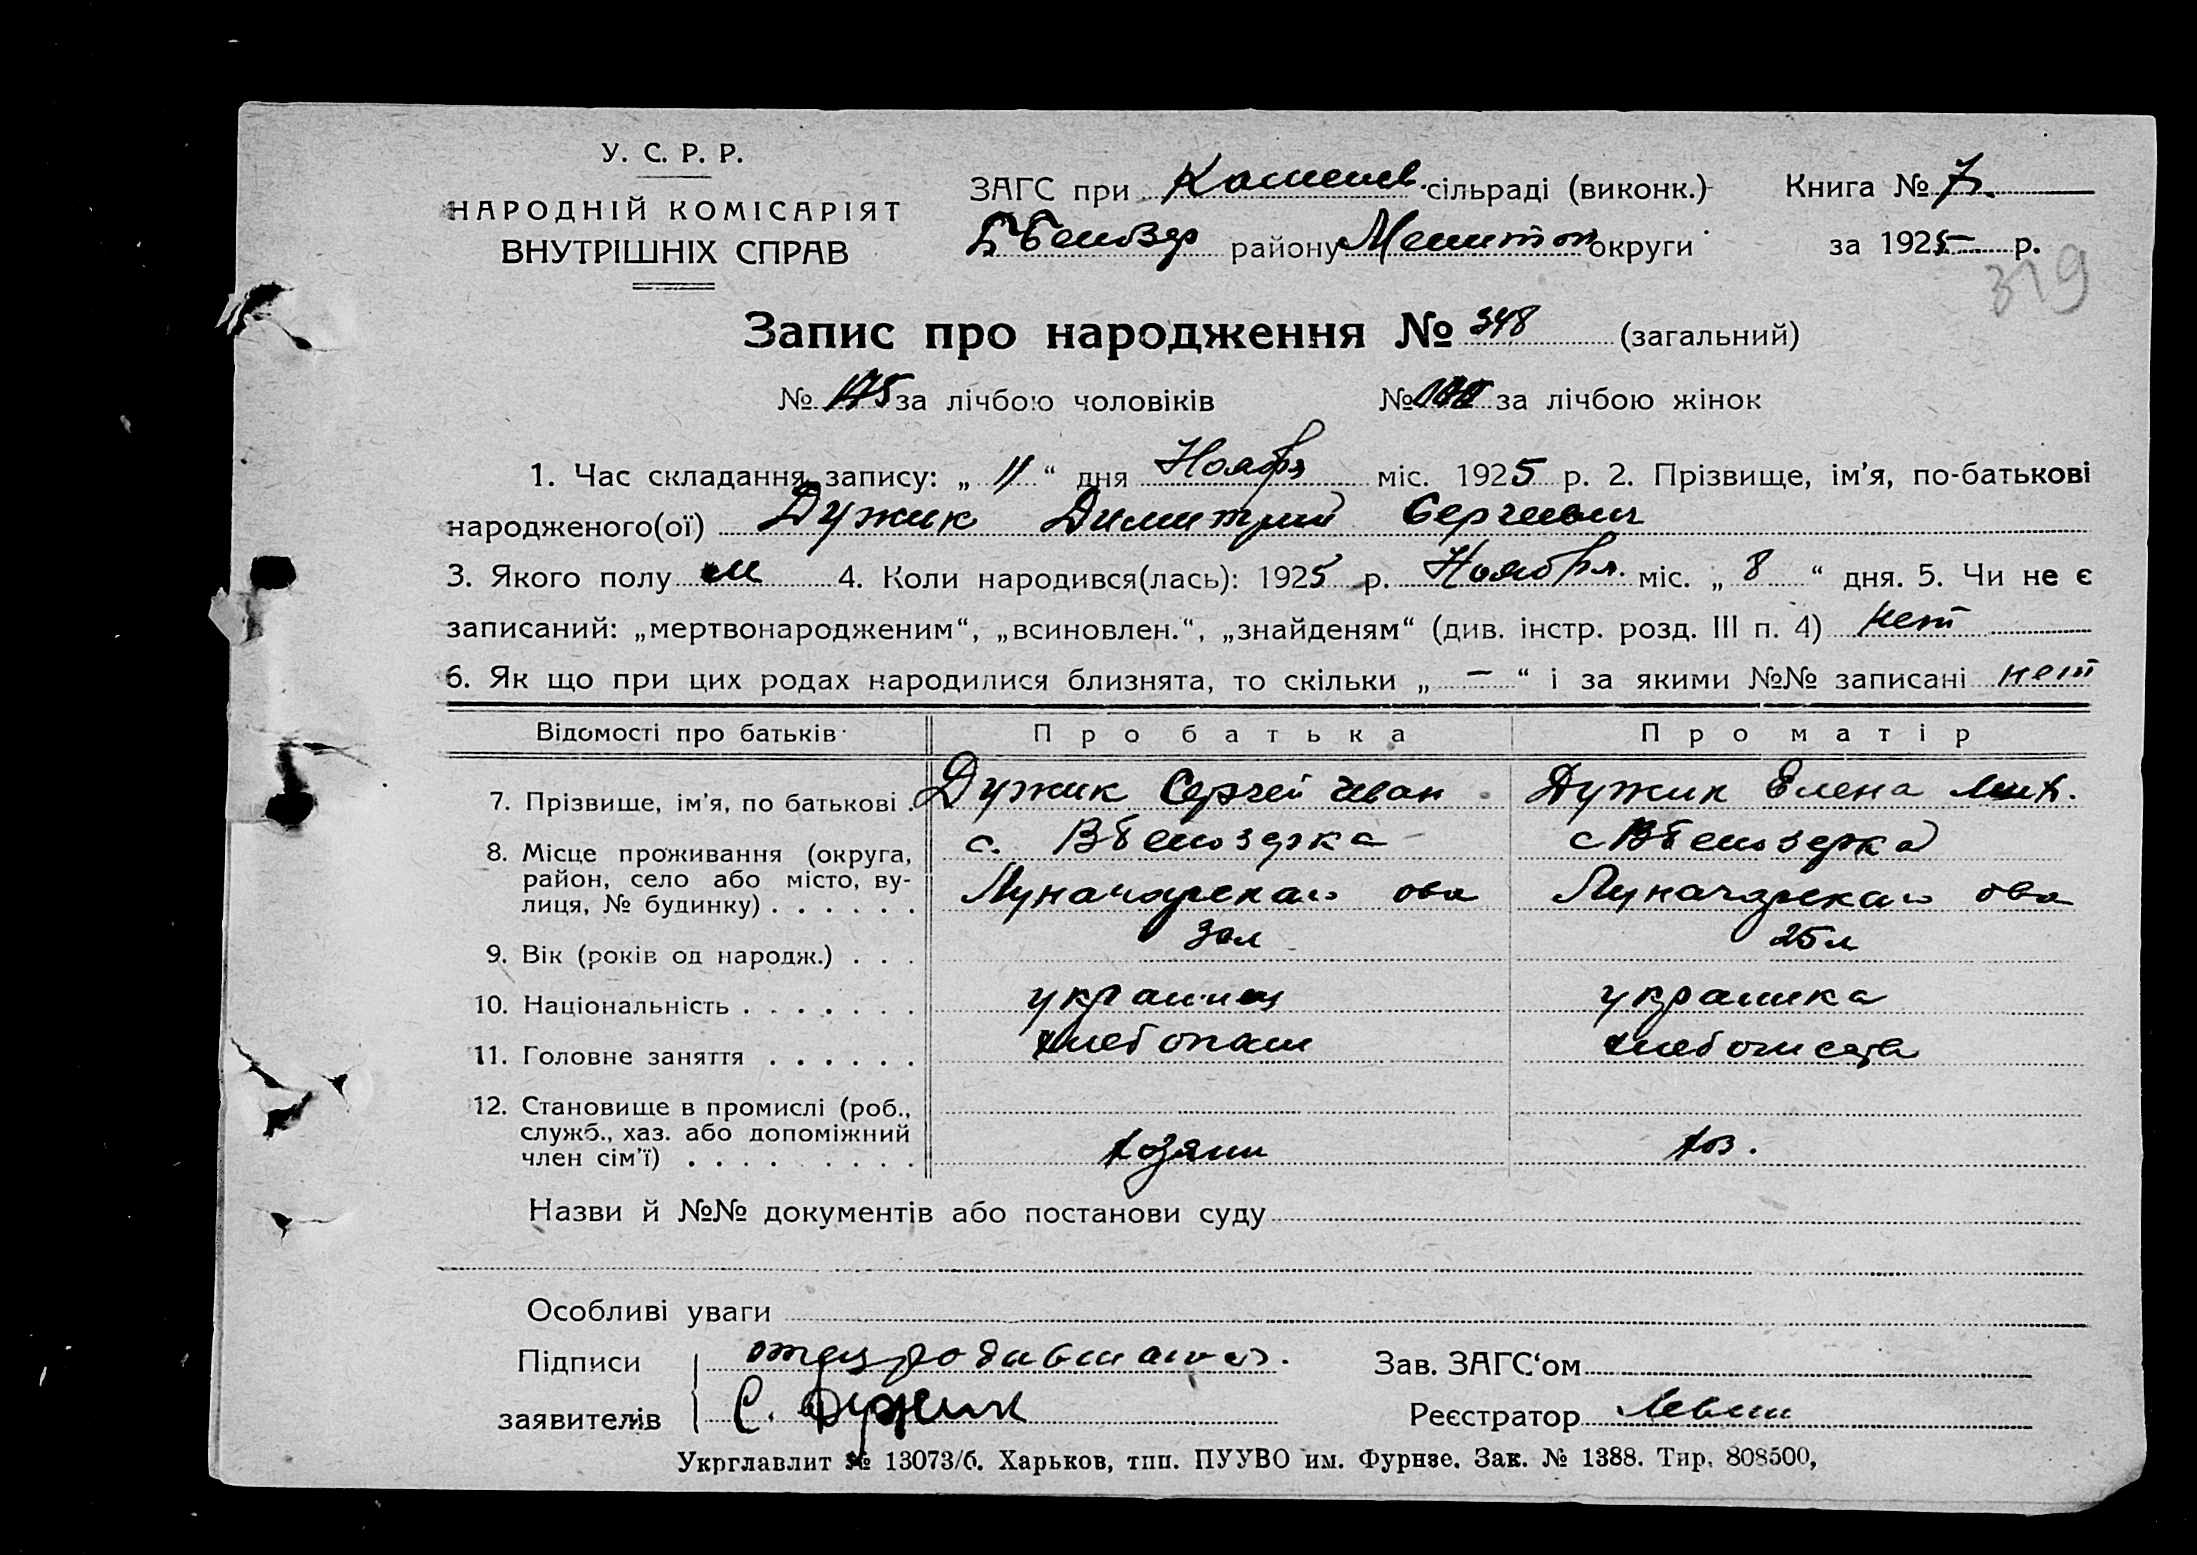 У. С. Р. Р.
НАРОДНІЙ КОМІСАРІЯТ
ВНУТРІШНІХ СПРАВ
ЗАГС при сільраді (виконк.)
Книга № 7
району Мелитоп округи
за 1925 р.
319
Запис про народження № 348 (загальний)
№ 175 за лічбою чоловіків № за лічбою жінок
1. Час складання запису: „ 11 “ дня Ноября міс. 1925 р. 2. Прізвище, ім’я, по-батькові
народженого(ої) Дужик Димитрий Сергеевич
3. Якого полу м 4. Коли народився(лась): 1925 р. Ноября міс. „ 8 “ дня. 5. Чи не є
записаний: „мертвонародженим“, „всиновлен.“, „знайденям“ (див. інстр. розд. III п. 4) нет
6. Як що при цих родах народилися близнята, то скільки „ – “ і за якими №№ записані нет
Відомості про батьків Про батька Про матір
7. Прізвище, ім’я, по батькові . Дужик Сергей Иван Дужик Елена Мих.
8. Місце проживання (округа, с. Вбелозерка с Вбелозерка
район, село або місто, ву-
лиця, № будинку) . . . . . . Луначарскаго ова Луначарскаго ова
9. Вік (років од народж.) . . . 30л 25л
10. Національність . . . . . . . украинец украинка
11. Головне заняття . . . . . . хлебопаш
12. Становище в промислі (роб.,
служб., хаз. або допоміжний
член сім’ї) . . . . . . . . . хозяин хоз.
Назви й №№ документів або постанови суду
Особливі уваги
Підписи отец родившагося.
Зав. ЗАГС‘ом
заявителів С. Дужик
Реєстратор Левин
Укрглавлит № 13073/б. Харьков, тип. ПУУВО им. Фурнзе. Зак. № 1388. Тир. 808500,